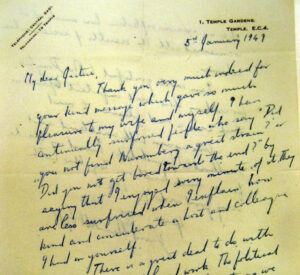 TELEPHONE, CENTRAL
1, TEMPLE GARDENS,
TEMPLE. E.C.4.
5th January 1947
My dear Justice,
Thank you very much indeed for
your kind message which gave so much
pleasure to my wife and myself. I have
continually surprised people who say "Did
you not find Nuremberg a great strain?" or
"Did you not get bored towards the end?" by
saying that I enjoyed every minute of it. They
are less surprised when I explain how
kind and considerate a host and colleague
I had in yourself.
There is a great deal to do with
work. The political
we